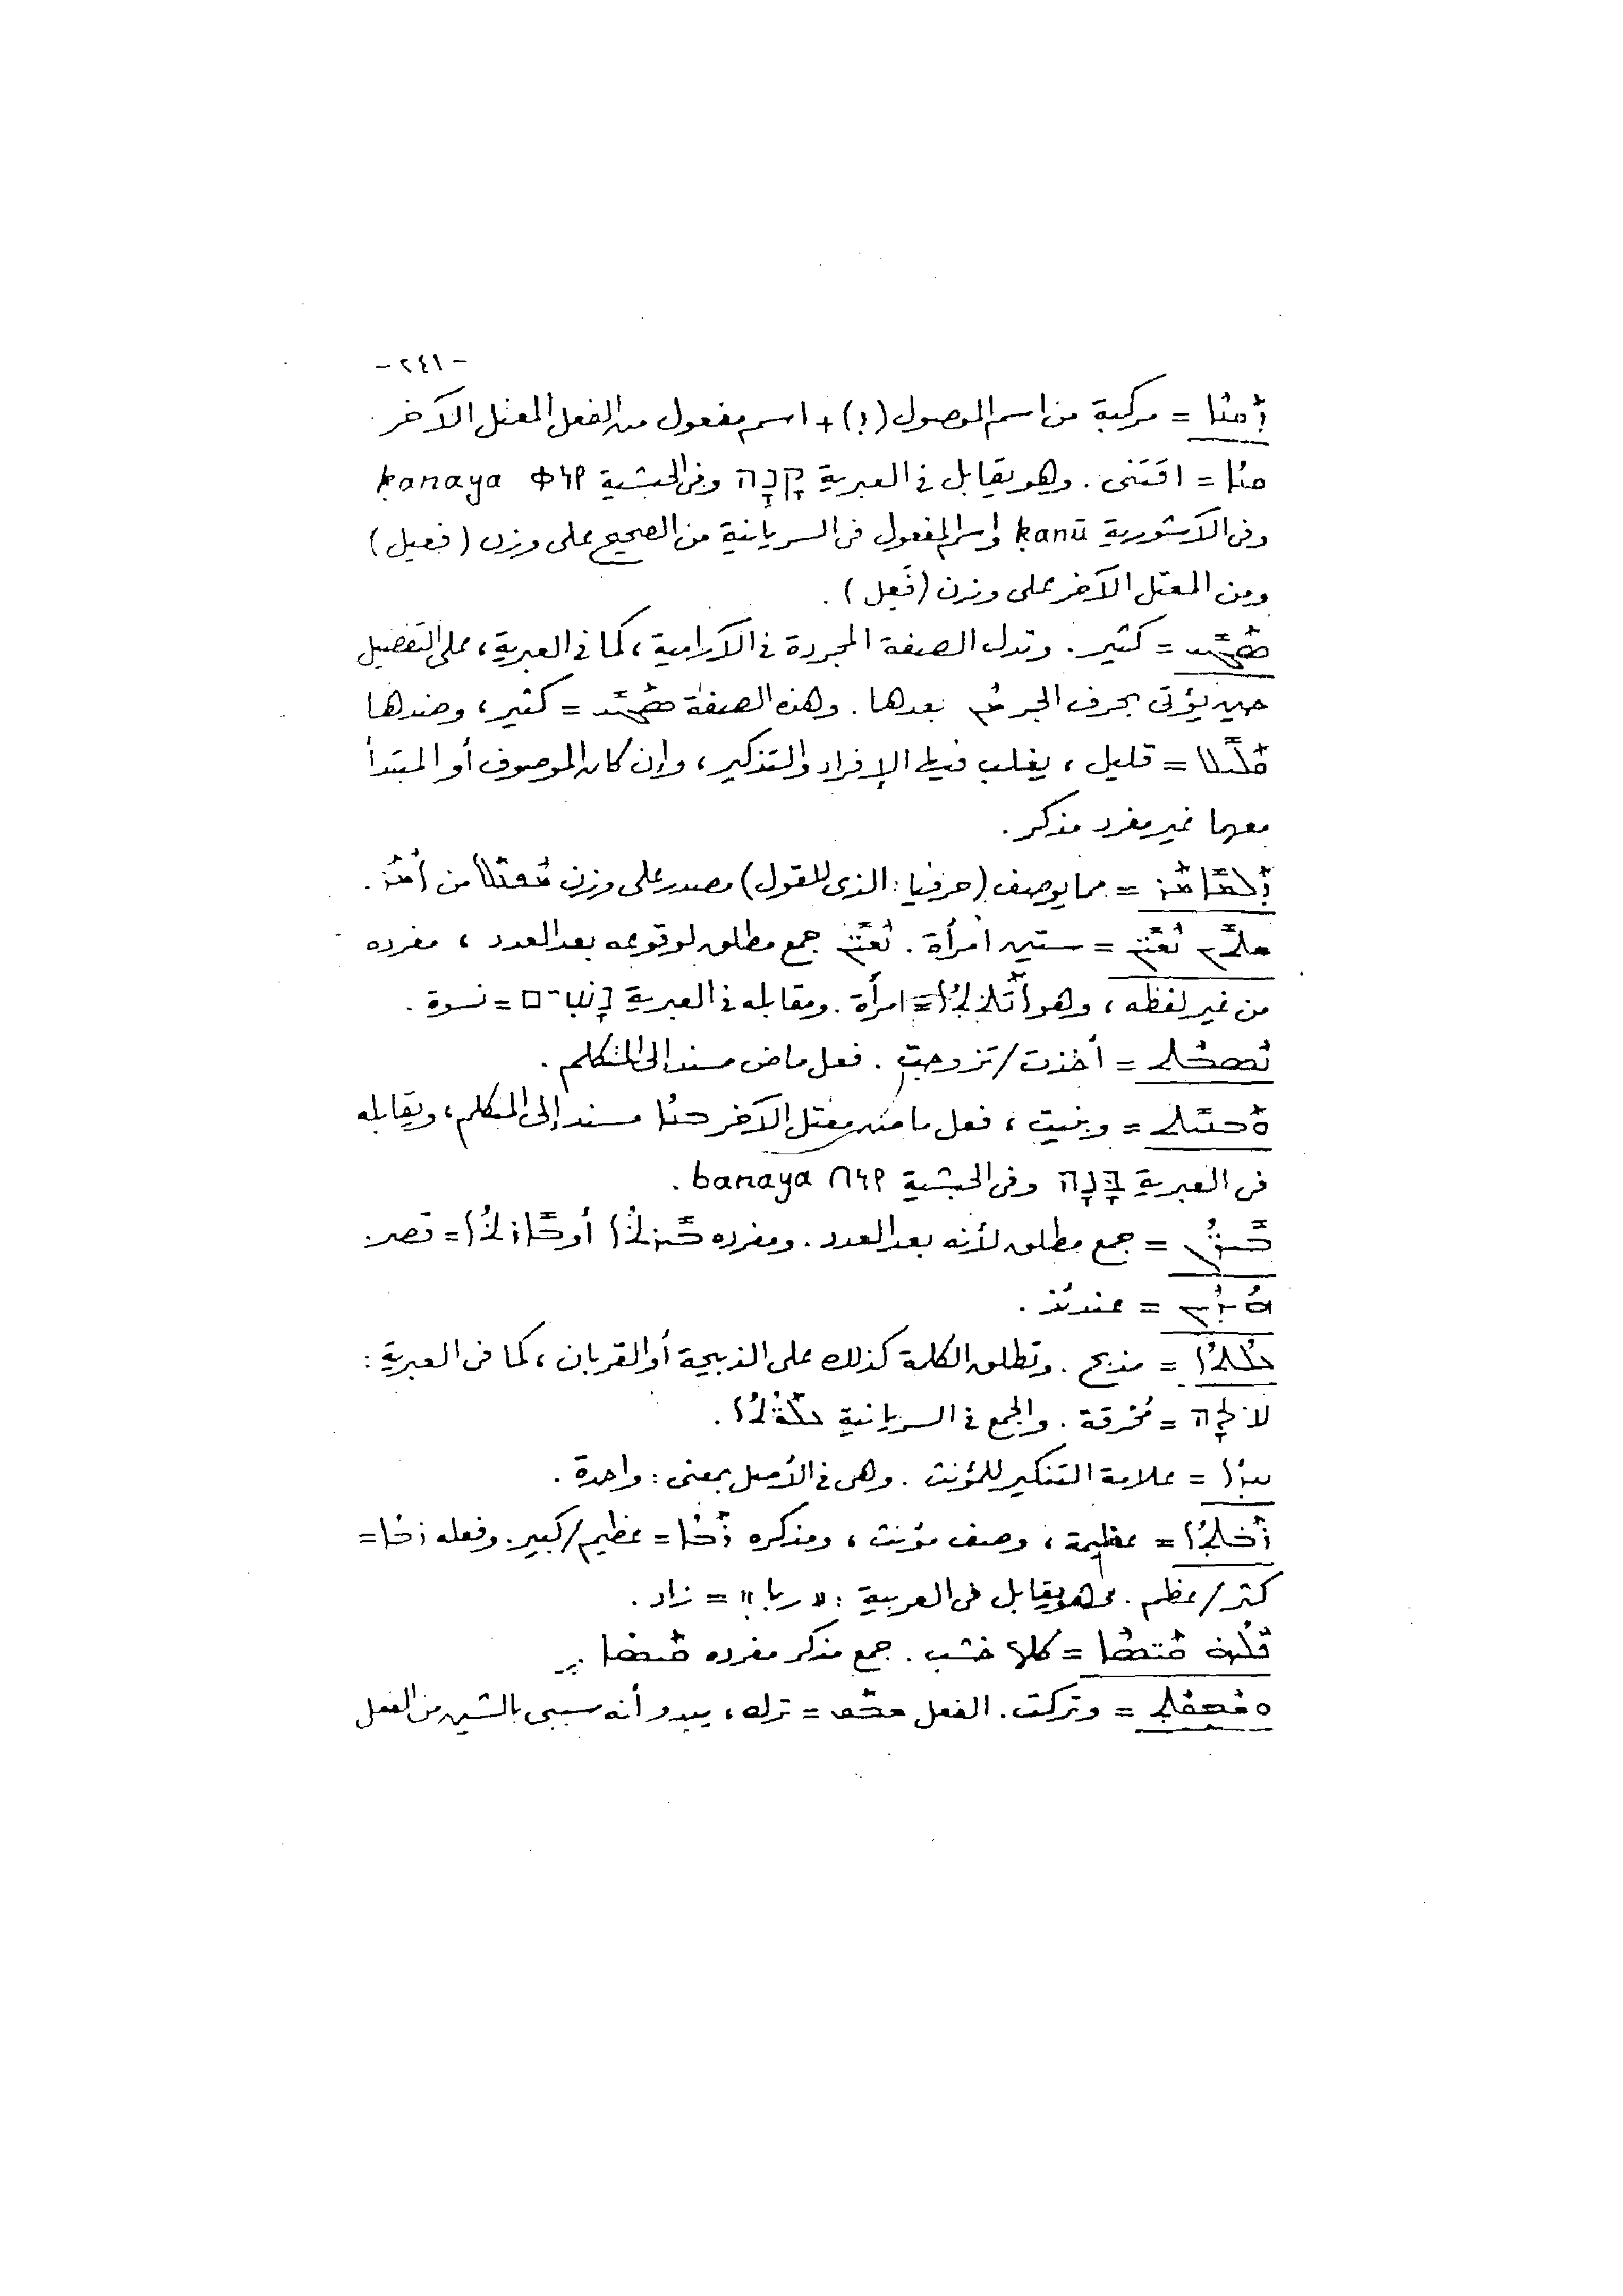 - ٢٤١ -
ܕܩܢܐ = مركبة من اسم الموصول (ܕ) + اسم مفعول من الفعل المعتل الآخر
ܩܢܐ = اقتنى. وهو يقابل في العبرية קָנָה وفي الحبشية ቀነየ kanaya
وفي الآشورية kanū واسم المفعول في السريانية من الصحيح على وزن (فعيل)
ومن المعتل الآخر على وزن (فَعِل).
ܣܓܝ = كثير. وتدل الصفة المجردة في الآرامية، كما في العبرية، على التفضيل
حين يؤتى بحرف الجر ܡܢ بعدها. وهذه الصفة ܣܓܝ = كثير، وضدها
ܩܠܝܠ = قليل، يغلب فيها الإفراد والتذكير، وإن كان الموصوف أو المبتدأ
معهما غير مفرد مذكر.
ܕܠܡܐܡܪ = مما يوصف (حرفيا: الذى للقول) مصدر على وزن ܡܦܥܠ من ܐܡܪ.
ܫܬܝܢ ܢܫܝܢ = ستين امرأة. ܢܫܝܢ جمع مطلق لوقوعه بعد العدد، مفرده
من غير لفظه، وهو ܐܢܬܬܐ = امرأة. ومقابله في العبرية נָשִׁים = نسوة.
ܢܣܒܬ = أخذت/تزوجت. فعل ماض مسند إلى المتكلم.
ܘܒܢܝܬ = وبنيت، فعل ماض معتل الآخر ܒܢܐ مسند إلى المتكلم، ويقابله
في العبرية בָּנָה وفي الحبشية በነየ banaya.
ܒܝܪܢ = جمع مطلق لأنه بعد العدد. ومفرده ܒܝܪܬܐ أو ܒܐܪܬܐ = قصر.
ܗܝܕܝܢ = عندئذ.
ܥܠܬܐ = مذبح. وتطلق الكلمة كذلك على الذبيحة أو القربان، كما في العبرية:
עֹלָה = مُحرقة. والجمع في السريانية ܥܠܘܬܐ.
ܚܕܐ = علامة التنكير للمؤنث. وهي في الأصل بمعنى: واحدة.
ܪܒܬܐ = عظيمة، وصف مؤنث، ومذكره ܪܒܐ = عظيم/كبير. وفعله ܪܒܐ =
كثر/عظم. وهو يقابل في العربية: «ربا» = زاد.
ܟܠܗ ܩܝܣܐ = كلها خشب. جمع مذكر مفرده ܩܝܣܐ.
ܘܫܒܩܬ = وتركت. الفعل ܫܒܩ = ترك، يبدو أنه سببى بالشين من الفعل